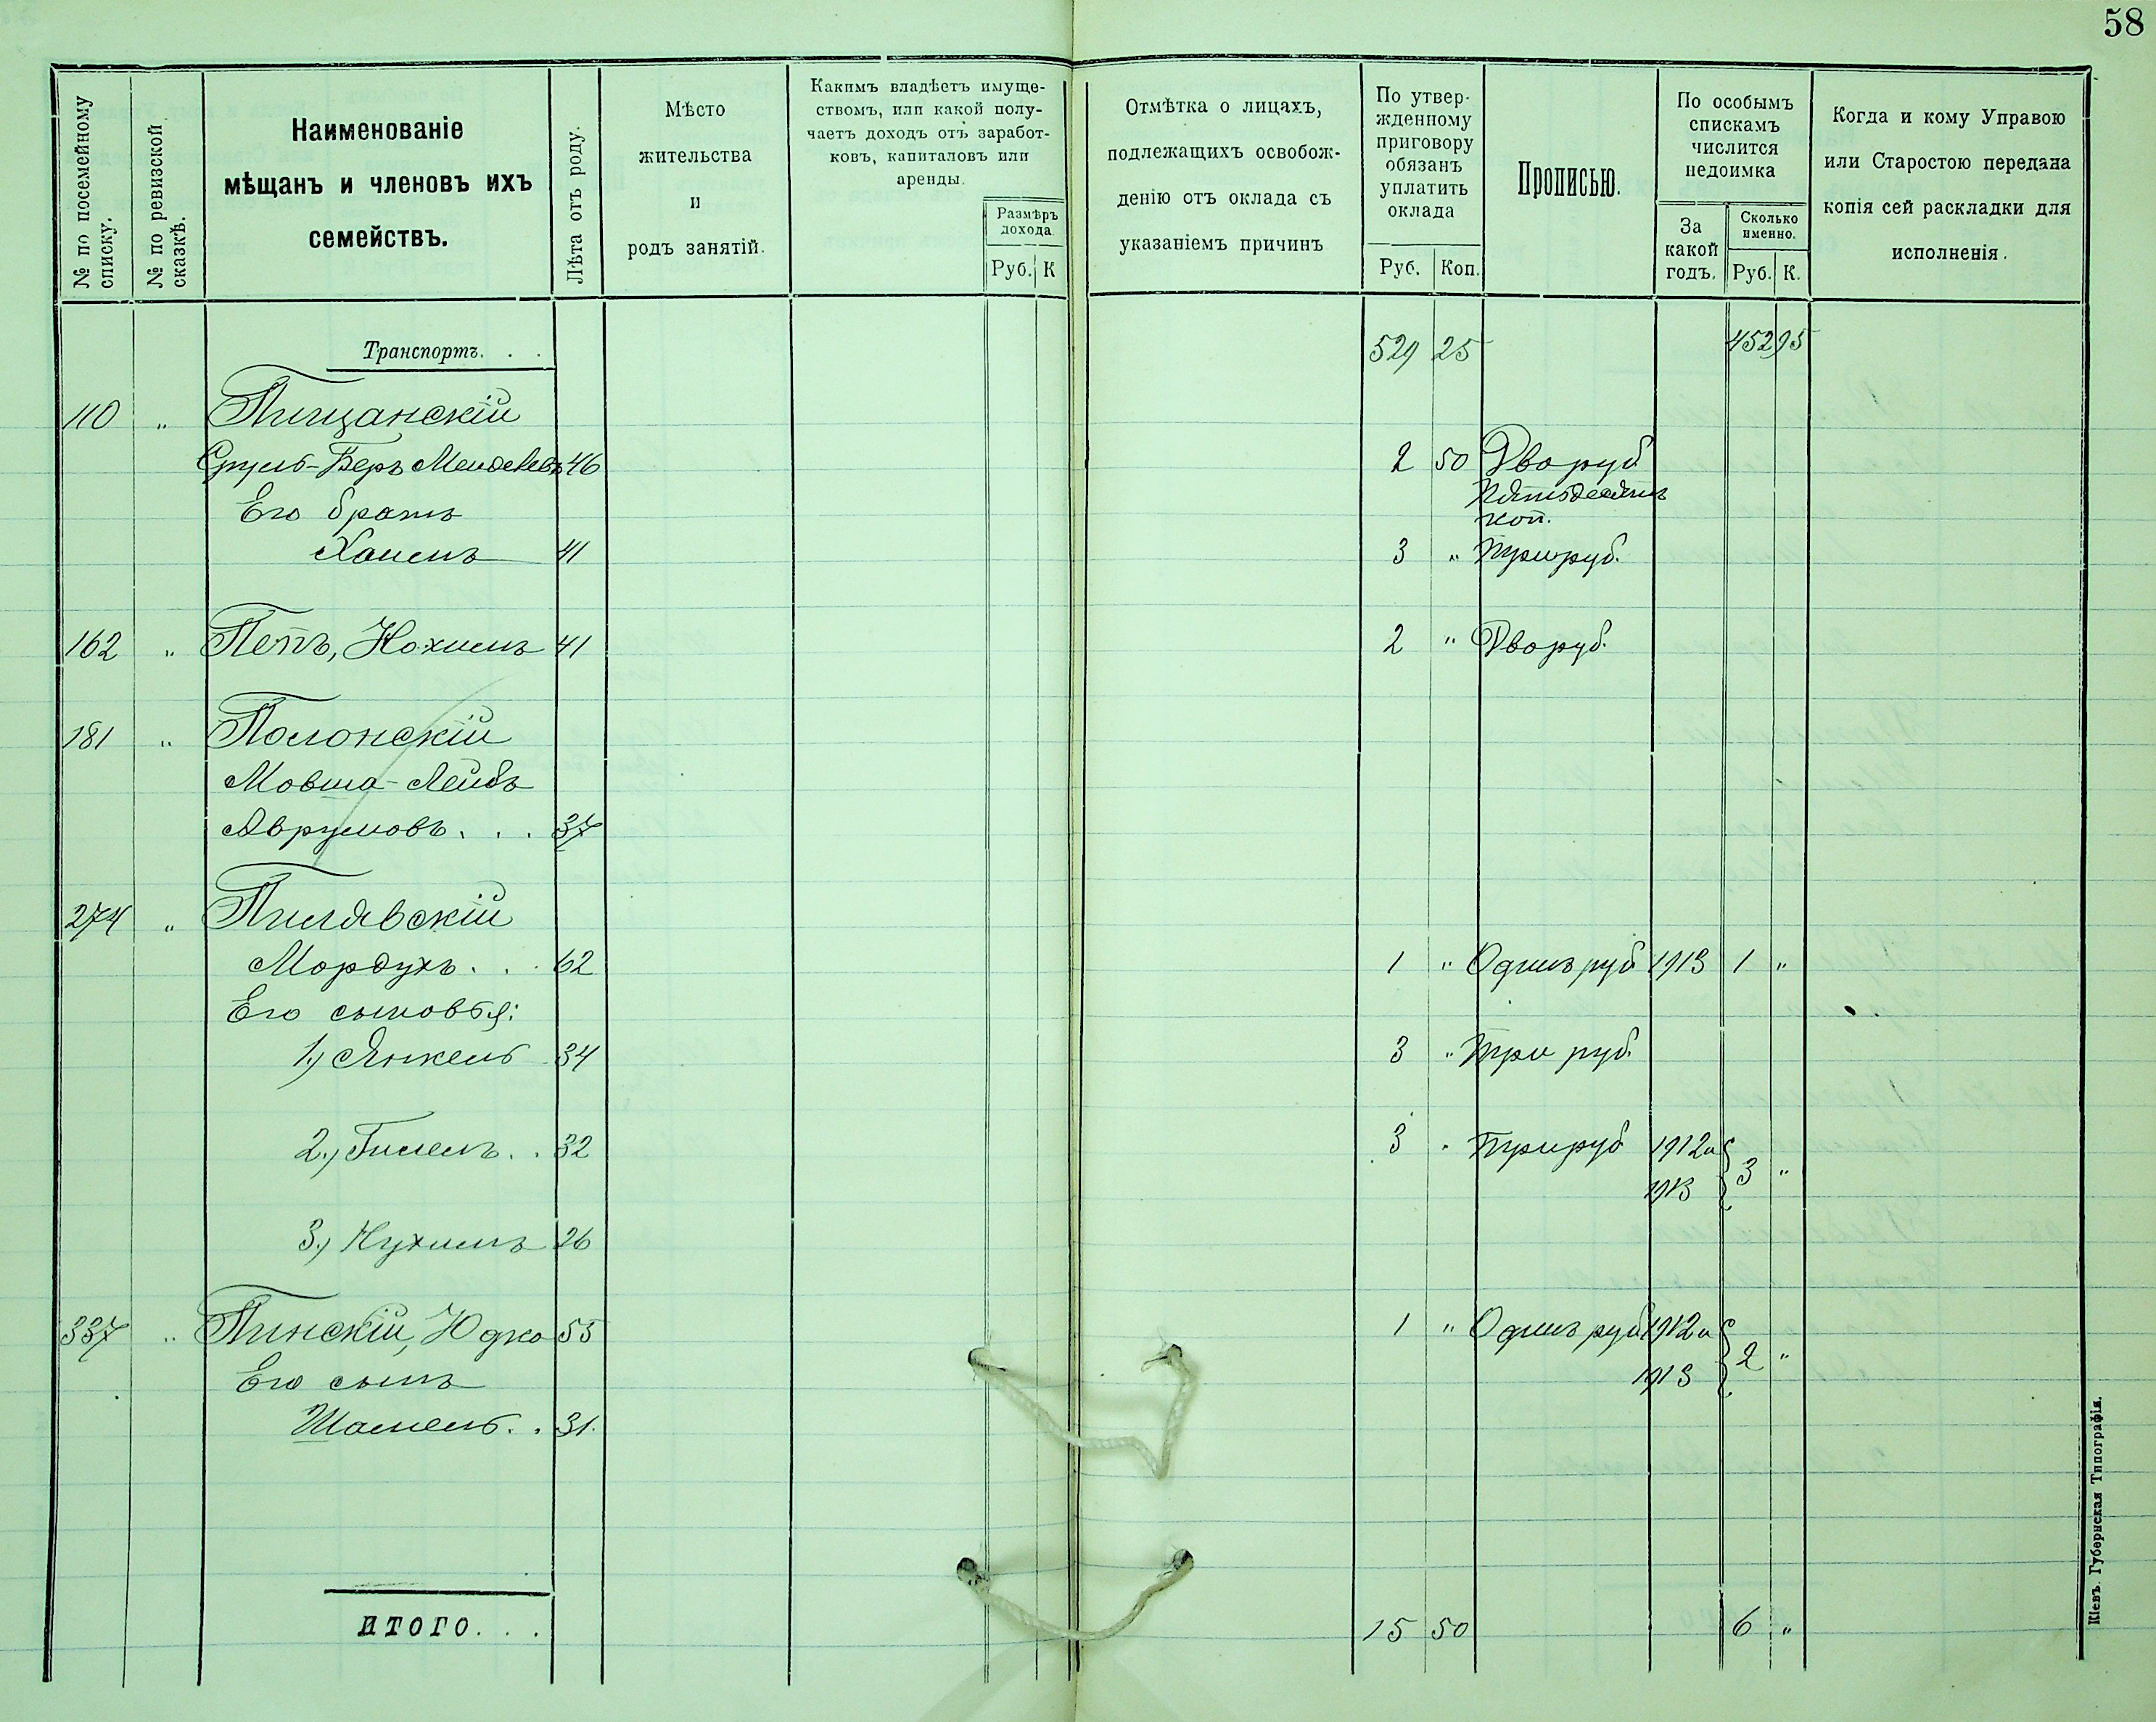 58
№ по посемейному списку.
№ по ревизской сказкѣ.
Наименованіе
мѣщанъ и членовъ ихъ
семействъ.
Лѣта отъ роду.
Мѣсто
жительства
и
родъ занятій.
Какимъ владѣетъ имуще-
ствомъ, или какой полу-
чаетъ доходъ отъ заработ-
ковъ, капиталовъ или
аренды.
Размѣръ
дохода
Руб. К
Отмѣтка о лицахъ,
подлежащихъ освобож-
денію отъ оклада съ
указаніемъ причинъ
По утвер-
жденному
приговору
обязанъ
уплатить
оклада
Руб. Коп.
Прописью.
По особымъ
спискамъ
числится
недоимка
За
какой
годъ.
Сколько
именно.
Руб. К.
Когда и кому Управою
или Старостою передана
копія сей раскладки для
исполненія.
Транспортъ. . . 529 25 452 95
110 " Пищанскій
Сруль-Беръ Менделевъ 46 2 50 Два руб
Его братъ пятьдесятъ
коп.
Хаимъ 41 3 " Три руб.
162 " Пепъ, Нохимъ 41 2 " Два руб.
181 " Полонскій
Мовша-Лейбъ
Аврумовъ. . . 37
274 " Пилявскій
Мордухъ. . . 62 1 " Одинъ руб 1913 1 "
Его сыновья:
1) Янкель 34 3 " Три руб.
2.) Гилель. . 32 3 " Три руб 1912 и
1913 3 "
3.) Нухимъ 26
337 " Пинскій, Юдко 55 1 " Одинъ руб 1912 и
Его сынъ 1913 2 "
Шамель. . 31.
ИТОГО. . . 15 50 6 "
Кіевъ. Губернская Типографія.